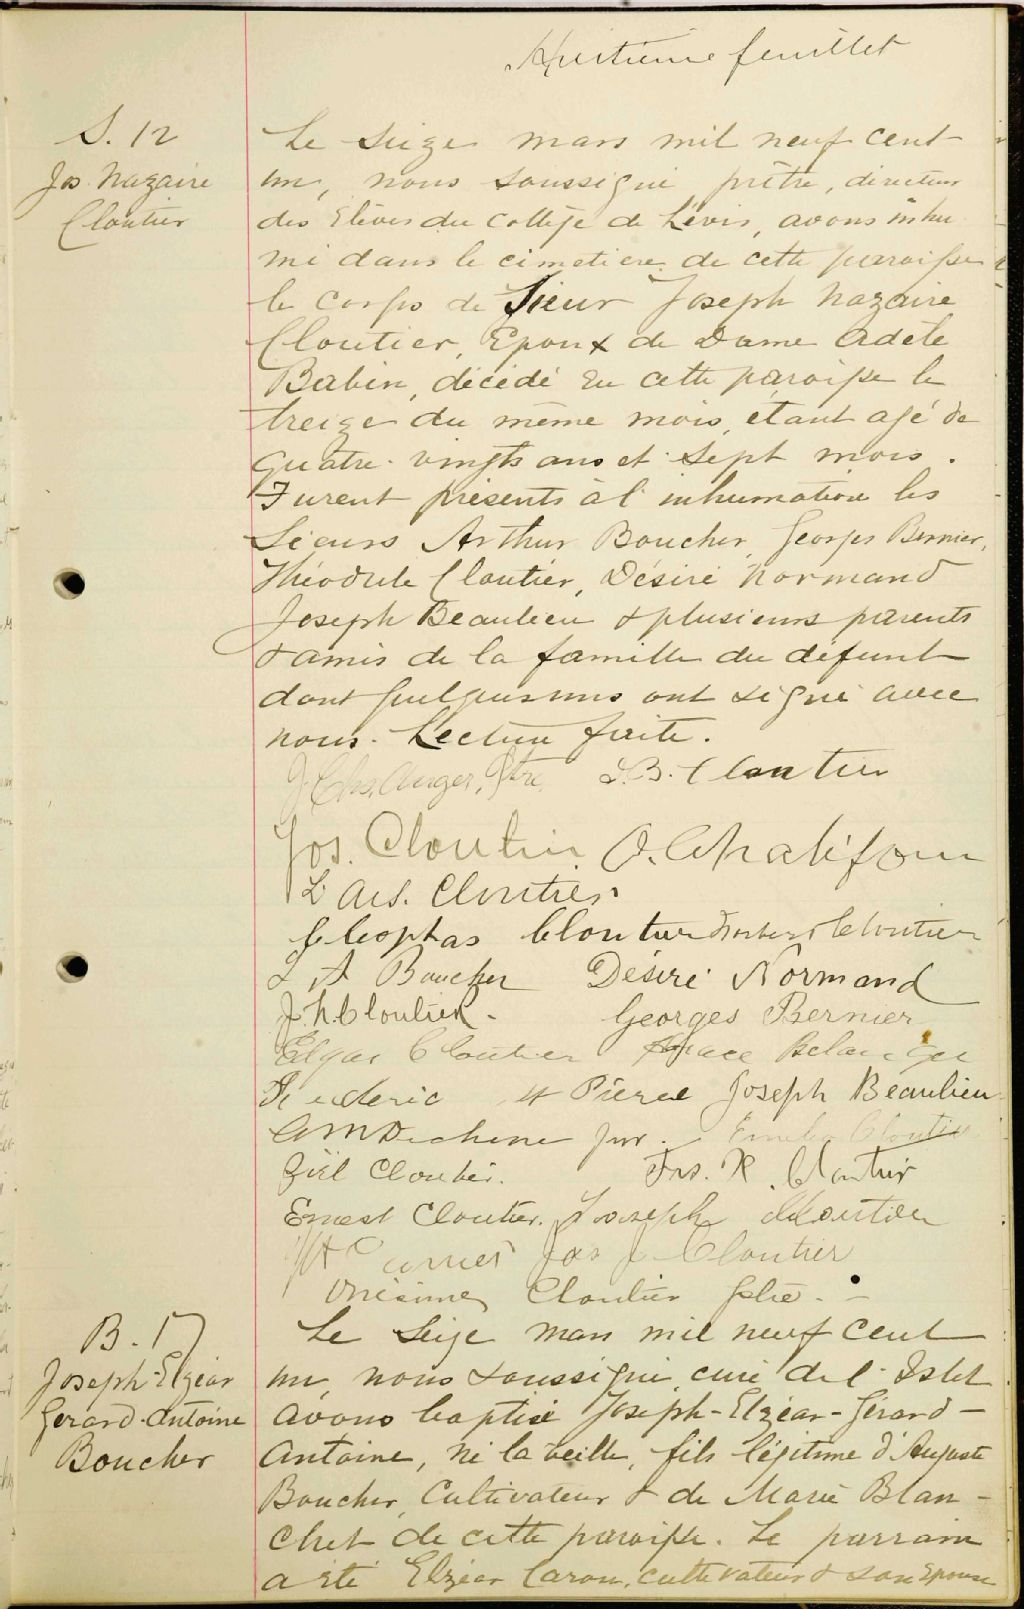 Huitième feuillet
S. 12
Jos. Nazaire
Cloutier
Le Seize mars mil neuf cent
un, nous soussigné prêtre, directeur
des Elèves du Collège de Lévis, avons inhu
mé dans le cimetière de cette paroisse
le corps de Sieur Joseph Nazaire
Cloutier, Epoux de Dame Adèle
Babin, décédé en cette paroisse le
treize du même mois, étant agé de
quatre-vingts ans et sept mois.
Furent présents à l'inhumation les
Sieurs Arthur Boucher, Georges Bernier,
Théodule Cloutier, Désiré Normand
Joseph Beaulieu & plusieurs parents
& amis de la famille du défunt
dont quelques uns ont signé avec
nous. Lecture faite.
J. Chs. Auger, Ptre. J.B. Cloutier
Jos. Cloutier. O. Chalifour
L. Ars. Cloutier
Cleophas Cloutier Cloutier
L A Boucher Désiré Normand
J.N. Cloutier. Georges Bernier
Edgar Cloutier Belanger
Frederic H Pierce Joseph Beaulieu
A M Dechene jnr. Cloutier
Cloutier. Jos. X. Cloutier
Ernest Cloutier. Joseph Cloutier
Jos J Cloutier
Onésime Cloutier ptre.
B. 17
Joseph-Elzéar
Gérard-Antoine
Boucher
Le Seize mars mil neuf cent
un, nous soussigné curé de l'Islet
avons baptisé Joseph-Elzéar-Gérard-
Antoine, né la veille, fils légitime d'Auguste
Boucher, Cultivateur & de Marie Blan-
chet de cette paroisse. Le parrain
a été Elzéar Caron, cultivateur & son Epouse